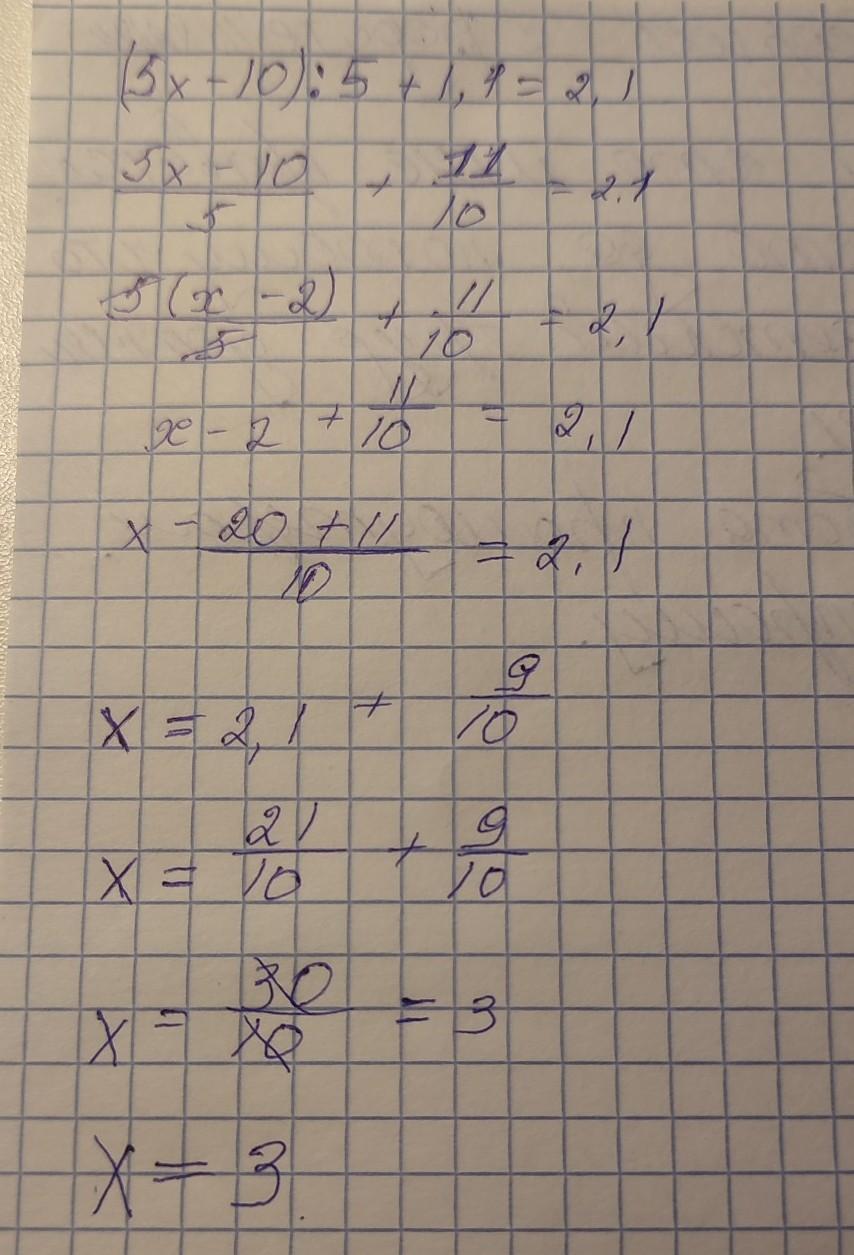 (5x - 10) : 5 + 1,1 = 2,1
5x - 10 / 5 + 11 / 10 = 2,1
5(x - 2) / 5 + 11 / 10 = 2,1
x - 2 + 11 / 10 = 2,1
x - 20 + 11 / 10 = 2,1
x = 2,1 + 9 / 10
x = 21 / 10 + 9 / 10
x = 30 / 10 = 3
x = 3